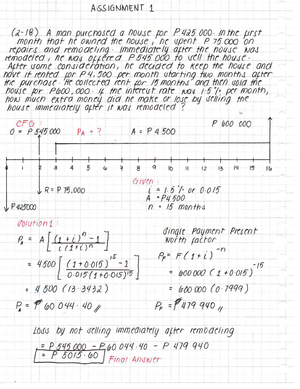 ASSIGNMENT 1
(2-18) A man purchased a house for ₱425 000. In the first
month that he owned the house, he spent ₱75 000 on
repairs and remodeling. Immediately after the house was
remodeled, he was offered ₱545 000 to sell the house.
After some consideration, he decided to keep the house and
have it rented for ₱4,500 per month starting two months after
the purchase. He collected rent for 15 months and then sold the
house for ₱600,000. If the interest rate was 1.5% per month,
how much extra money did he make or lose by selling the
house immediately after it was remodeled?
CFG:
O = ₱545 000
PA = ?
A = ₱4 500
₱ 600 000
0 1 2 3 4 5 6 7 8 9 10 11 12 13 14 15 16
R = ₱75.000
₱425000
Given:
i = 1.5% or 0.015
A = ₱4500
n = 15 months
Solution 1:
P = A [(1+i)ⁿ - 1 / i(1+i)ⁿ]
= 4500 [(1+0.015)¹⁵ - 1 / 0.015(1+0.015)¹⁵]
= 4 500 (13.3432)
P = ₱ 60 044.40 //
Single Payment Present
Worth Factor
P = F(1+i)⁻ⁿ
= 600 000 (1+0.015)⁻¹⁵
= 600 000 (0.7999)
P = ₱479 940 //
Loss by not selling immediately after remodeling
= ₱545 000 - ₱60 044.40 - ₱479 940
= ₱ 5015.60
Final Answer